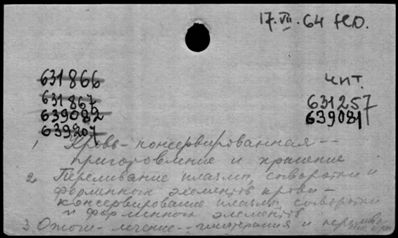 17.VII.64
631866
631867
639082
639207
чит.
631257
639081
1 Кровь - консервированная -
приготовление и хранение
2 Переливание плазмы, сыворотки и
форменных элементов крови -
консервирование плазмы, сыворотки
и форменных элементов
3 Ожоги - лечение - и